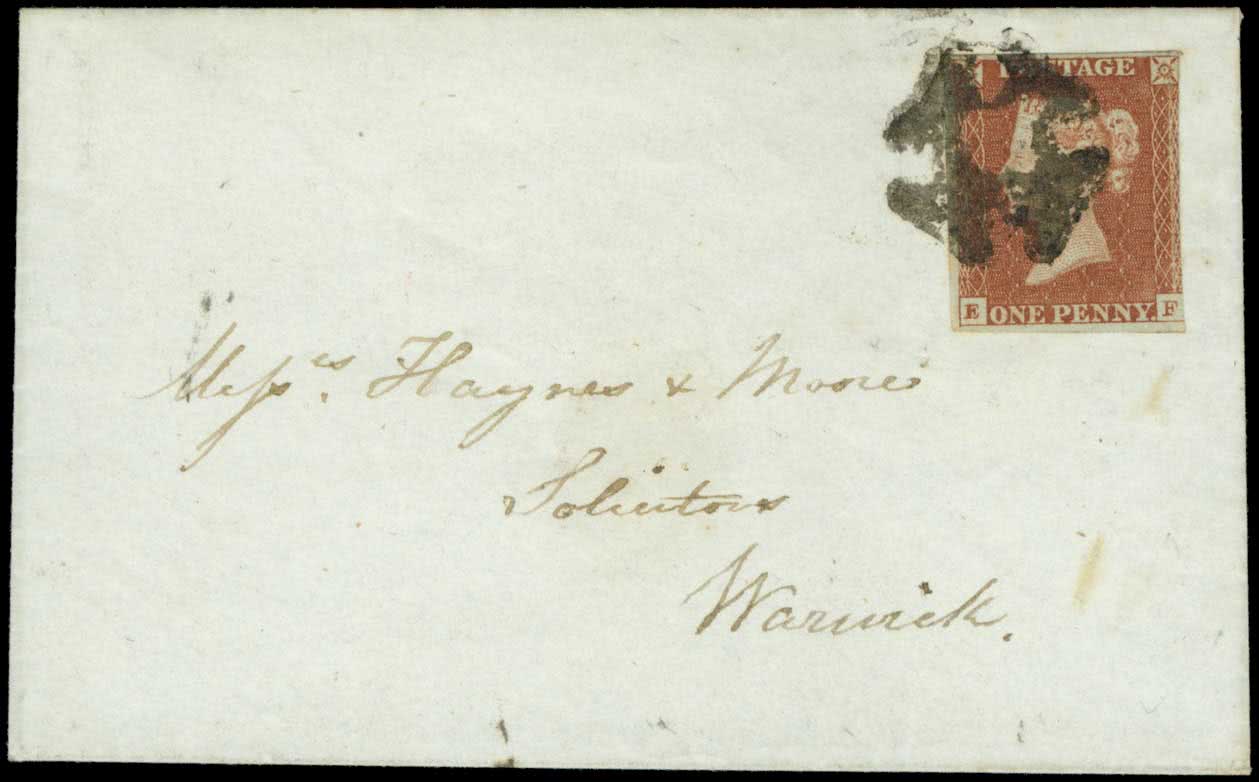 POSTAGE
E ONE PENNY. F
Messrs. Haynes & Moore
Solicitors
Warwick.